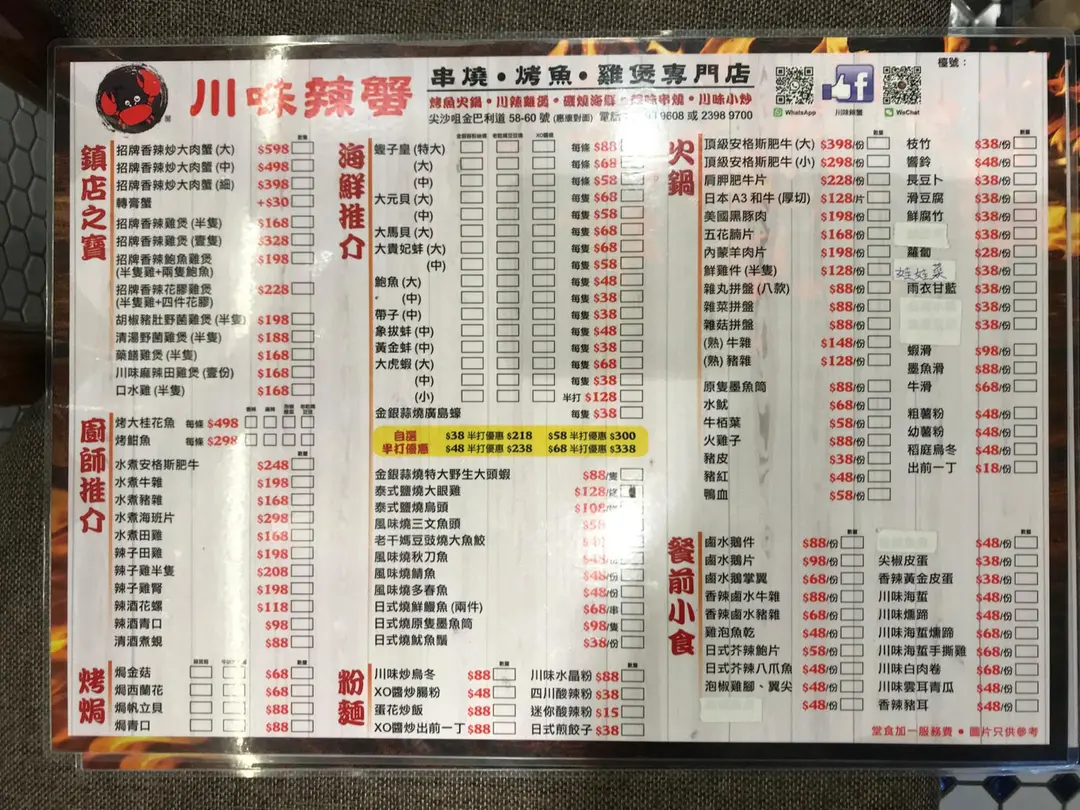 川味辣蟹
串燒•烤魚•雞煲專門店
烤魚火鍋•川辣雞煲•磯燒海鮮•串味串燒•川味小炒
尖沙咀金巴利道 58-60 號 (惠康對面) 電話 9608 或 2398 9700
WhatsApp
川味辣蟹
WeChat
檯號：
鎮店之寶
數量
招牌香辣炒大肉蟹 (大) $598
招牌香辣炒大肉蟹 (中) $498
招牌香辣炒大肉蟹 (細) $398
轉膏蟹 +$30
招牌香辣雞煲 (半隻) $168
招牌香辣雞煲 (壹隻) $328
招牌香辣鮑魚雞煲 $198
(半隻雞+兩隻鮑魚)
招牌香辣花膠雞煲 $228
(半隻雞+四件花膠)
胡椒豬肚野菌雞煲 (半隻) $198
清湯野菌雞煲 (半隻) $188
藥膳雞煲 (半隻) $168
川味麻辣田雞煲 (壹份) $168
口水雞 (半隻) $168
廚師推介
烤大桂花魚 每條 $498
烤鮒魚 每條 $298
數量
水煮安格斯肥牛 $248
水煮牛雜 $198
水煮豬雜 $168
水煮海班片 $298
水煮田雞 $168
辣子田雞 $198
辣子雞半隻 $208
辣子雞腎 $198
辣酒花螺 $118
辣酒青口 $98
清酒煮蜆 $88
烤焗
數量
焗金菇 $68
焗西蘭花 $68
焗帆立貝 $88
焗青口 $88
海鮮推介
金銀蒜粉絲燒 老乾媽豆豉燒 XO醬燒
蟶子皇 (特大) 每條 $88
(大) 每條 $68
(中) 每條 $58
大元貝 (大) 每隻 $68
(中) 每隻 $58
大馬貝 (大) 每隻 $68
大貴妃蚌 (大) 每隻 $68
(中) 每隻 $58
鮑魚 (大) 每隻 $48
(中) 每隻 $38
帶子 (中) 每隻 $38
象拔蚌 (中) 每隻 $48
黃金蚌 (中) 每隻 $38
大虎蝦 (大) 每隻 $68
(中) 每隻 $38
(小) 半打 $128
金銀蒜燒廣島蠔 每隻 $38
自選 $38 半打優惠 $218 $58 半打優惠 $300
半打優惠 $48 半打優惠 $238 $68 半打優惠 $338
金銀蒜燒特大野生大頭蝦 $88/隻
泰式鹽燒大眼雞 $128/
泰式鹽燒烏頭 $108/
風味燒三文魚頭 $58
老干媽豆豉燒大魚鮫
風味燒秋刀魚 $48/份
風味燒鯖魚 $48/份
風味燒多春魚 $48/份
日式燒鮮鰻魚 (兩件) $68/串
日式燒原隻墨魚筒 $98/隻
日式燒魷魚鬚 $38/份
粉麵
數量
川味炒烏冬 $88
XO醬炒腸粉 $48
蛋花炒飯 $88
XO醬炒出前一丁 $88
數量
川味水晶粉 $88
四川酸辣粉 $38
迷你酸辣粉 $15
日式煎餃子 $38
火鍋
數量
頂級安格斯肥牛 (大) $398/份
頂級安格斯肥牛 (小) $298/份
肩胛肥牛片 $228/份
日本 A3 和牛 (厚切) $128/片
美國黑豚肉 $198/份
五花腩片 $168/份
內蒙羊肉片 $198/份
鮮雞件 (半隻) $128/份
雜丸拼盤 (八款) $88/份
雜菜拼盤 $88/份
雜菇拼盤 $88/份
(熟) 牛雜 $148/份
(熟) 豬雜 $128/份
原隻墨魚筒 $88/份
水魷 $68/份
牛栢葉 $58/份
火雞子 $88/份
豬皮 $38/份
豬紅 $48/份
鴨血 $58/份
數量
枝竹 $38/份
響鈴 $48/份
長豆卜 $38/份
滑豆腐 $38/份
鮮腐竹 $38/份
$38/份
蘿蔔 $28/份
娃娃菜 $38/份
雨衣甘藍 $38/份
$38/份
$38/份
蝦滑 $98/份
墨魚滑 $88/份
牛滑 $68/份
粗薯粉 $48/份
幼薯粉 $48/份
稻庭烏冬 $48/份
出前一丁 $18/份
餐前小食
數量
鹵水鵝件 $88/份
鹵水鵝片 $98/份
鹵水鵝掌翼 $68/份
香辣鹵水牛雜 $88/份
香辣鹵水豬雜 $68/份
雞泡魚乾 $48/份
日式芥辣鮑片 $58/份
日式芥辣八爪魚 $48/份
泡椒雞腳、翼尖 $48/份
$48/份
數量
$48/份
尖椒皮蛋 $38/份
香辣黃金皮蛋 $38/份
川味海蜇 $48/份
川味燻蹄 $48/份
川味海蜇燻蹄 $68/份
川味海蜇手撕雞 $68/份
川味白肉卷 $68/份
川味雲耳青瓜 $48/份
香辣豬耳 $48/份
堂食加一服務費 • 圖片只供參考